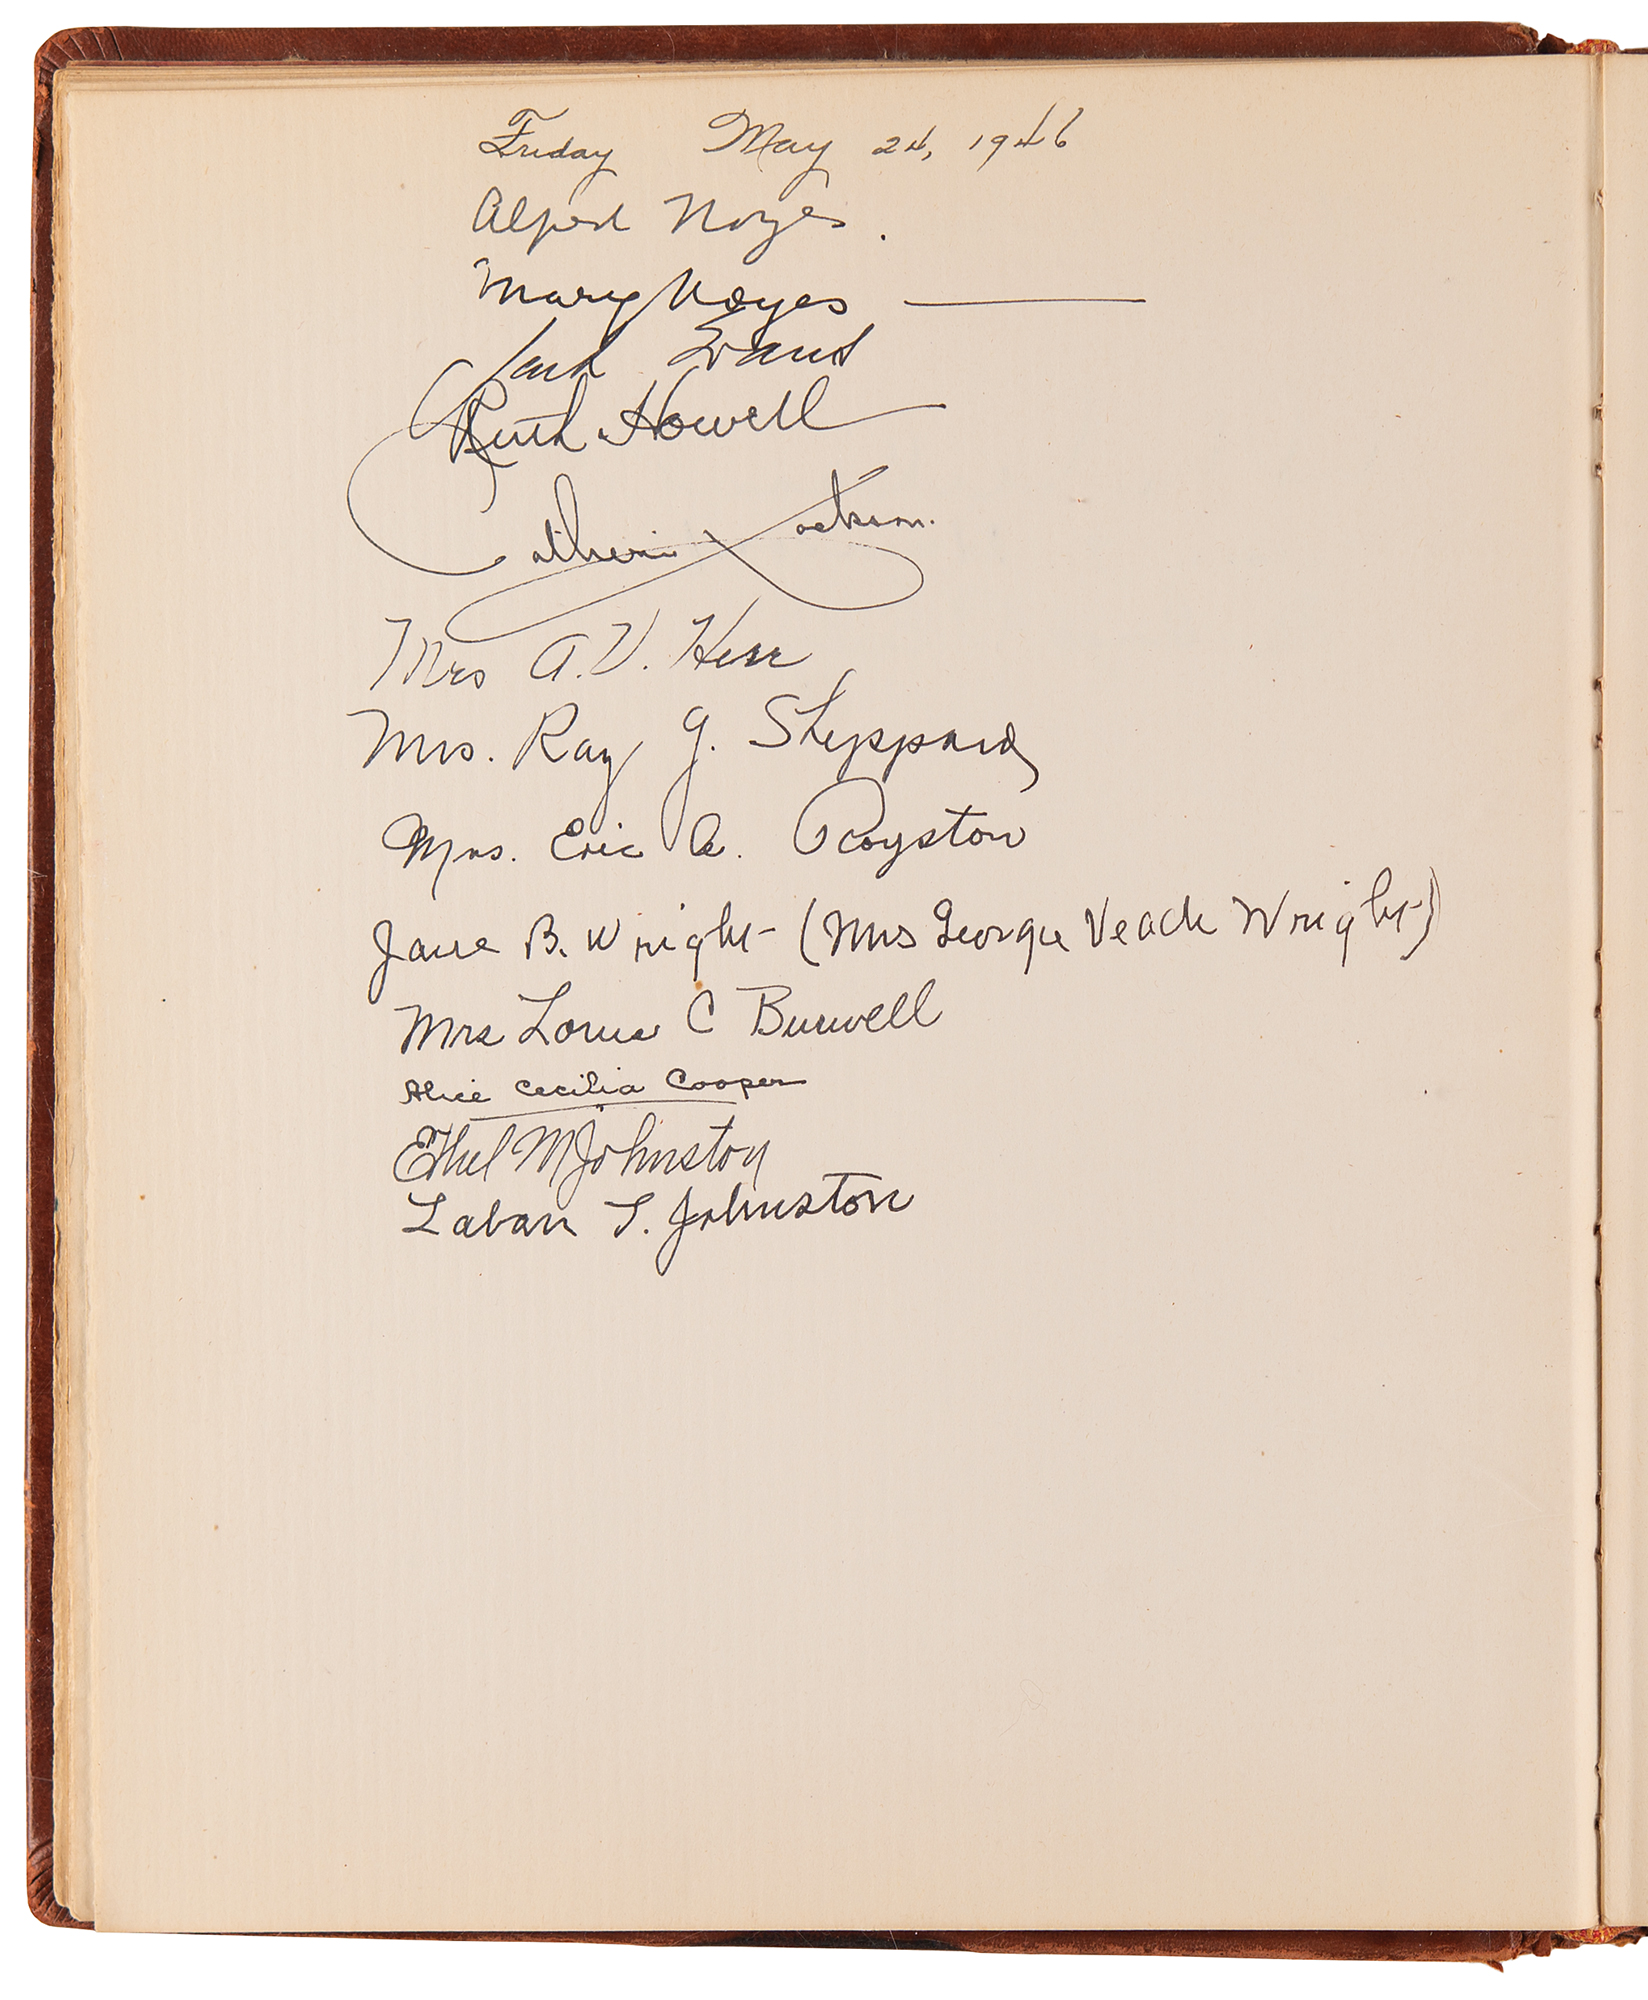 Friday May 24, 1946
Alfred Noyes.
Mary Noyes
Jack Evans
Ruth Howell
Catherine Jackson.
Mrs A. V. Herr
Mrs. Ray J. Sheppard
Mrs. Eric A. Royston
Jane B. Wright (Mrs George Veach Wright)
Mrs Louis C Burwell
Alice Cecilia Cooper
Ethel M Johnston
Laban T. Johnston